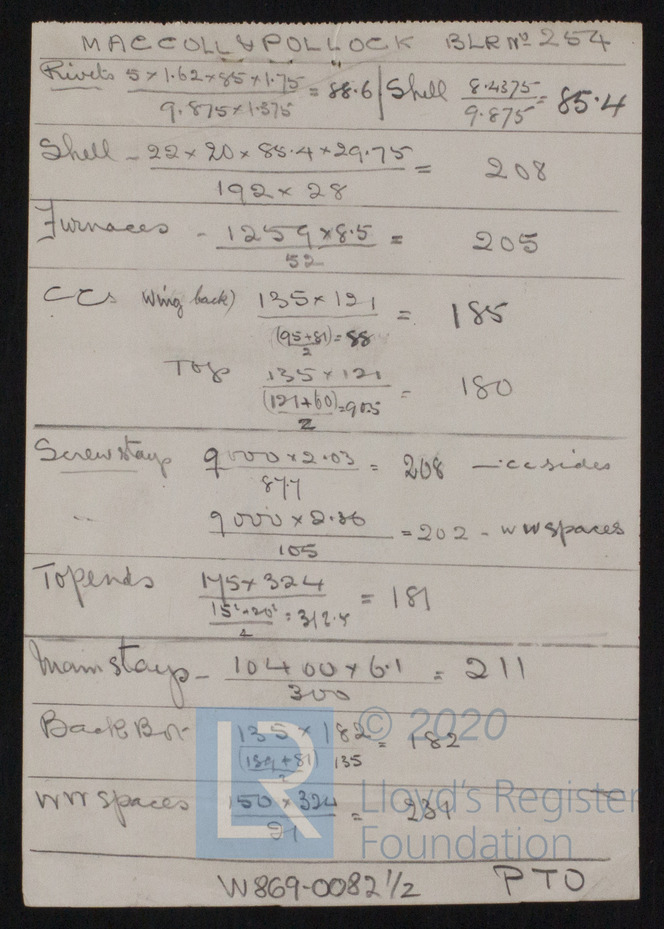 MACCOLL & POLLOCK BLR Nº 254
Rivets 5 × 1.62 × 85 × 1.75 / 9.875 × 1.375 = 88.6 | Shell 8.4375 / 9.875 = 85.4
Shell - 22 × 20 × 85.4 × 29.75 / 192 × 28 = 208
Furnaces - 1259 × 8.5 / 52 = 205
CCs Wing back) 135 × 121 / (95+81)/2 = 88 = 185
Top 135 × 121 / (121+60)/2 = 90.5 = 180
Screw stays 9000 × 2.03 / 87.7 = 208 - cc sides
" 9000 × 2.36 / 105 = 202 - WW spaces
Top ends 175 × 324 / 15²+20² / 4 = 312.5 = 181
Main stays - 10400 × 6.1 / 300 = 211
Back Bot. 135 × 182 / 135 = 182
WW spaces 150 × 324 / 21 = 231
LR © 2020
Lloyd's Register
Foundation
W869-0082 1/2 PTO